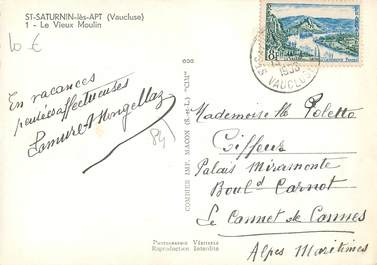 ST-SATURNIN-lès-APT (Vaucluse)
1 - Le Vieux Moulin
10 €
En vacances
pensées affectueuses
84
COMBIER IMP. MACON (S.-et-L.) "CIM"
8F
1953
VAUCLUSE
Mademoiselle Poletto
Coiffeur
Palais Miramonte
Boul.d Carnot
Le Cannet de Cannes
Alpes Maritimes
Photographie Véritable
Reproduction Interdite